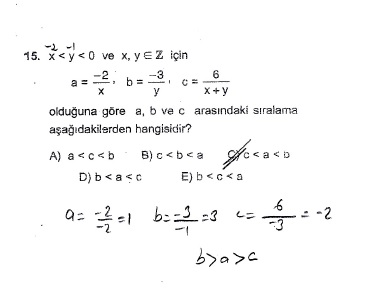 -2 -1
15. x < y < 0 ve x, y ∈ ℤ için
a = -2/x, b = -3/y, c = 6/(x+y)
olduğuna göre a, b ve c arasındaki sıralama
aşağıdakilerden hangisidir?
A) a < c < b B) c < b < a C) c < a < b
D) b < a < c E) b < c < a
a = -2/-2 = 1 b = -3/-1 = 3 c = 6/-3 = -2
b > a > c